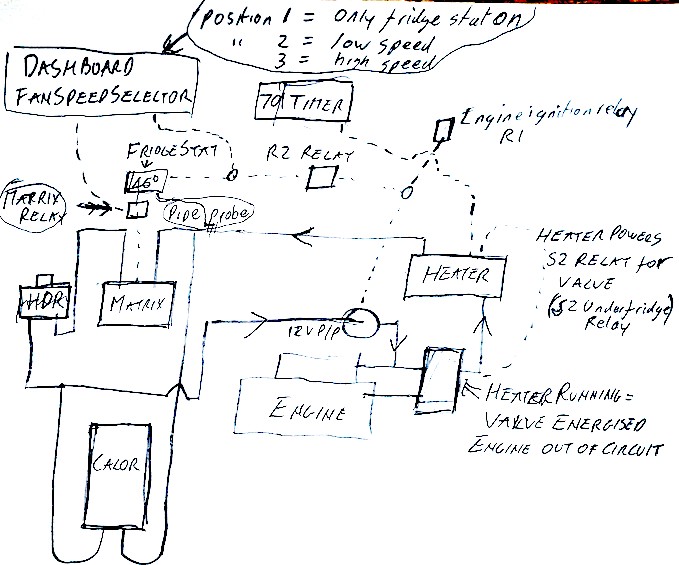 position 1 = only fridge stat on
" 2 = low speed
3 = high speed
DASHBOARD
FANSPEEDSELECTOR
70 TIMER
Engine ignition relay
R1
FRIDGESTAT
R2 RELAY
45°
MATRIX
RELAY
Pipe probe
HEATER POWERS
S2 RELAY for
VALVE
(S2 Underfridge)
Relay
HEATER
HDR
MATRIX
12V P/P
ENGINE
HEATER RUNNING =
VALVE ENERGISED
ENGINE OUT OF CIRCUIT
CALOR